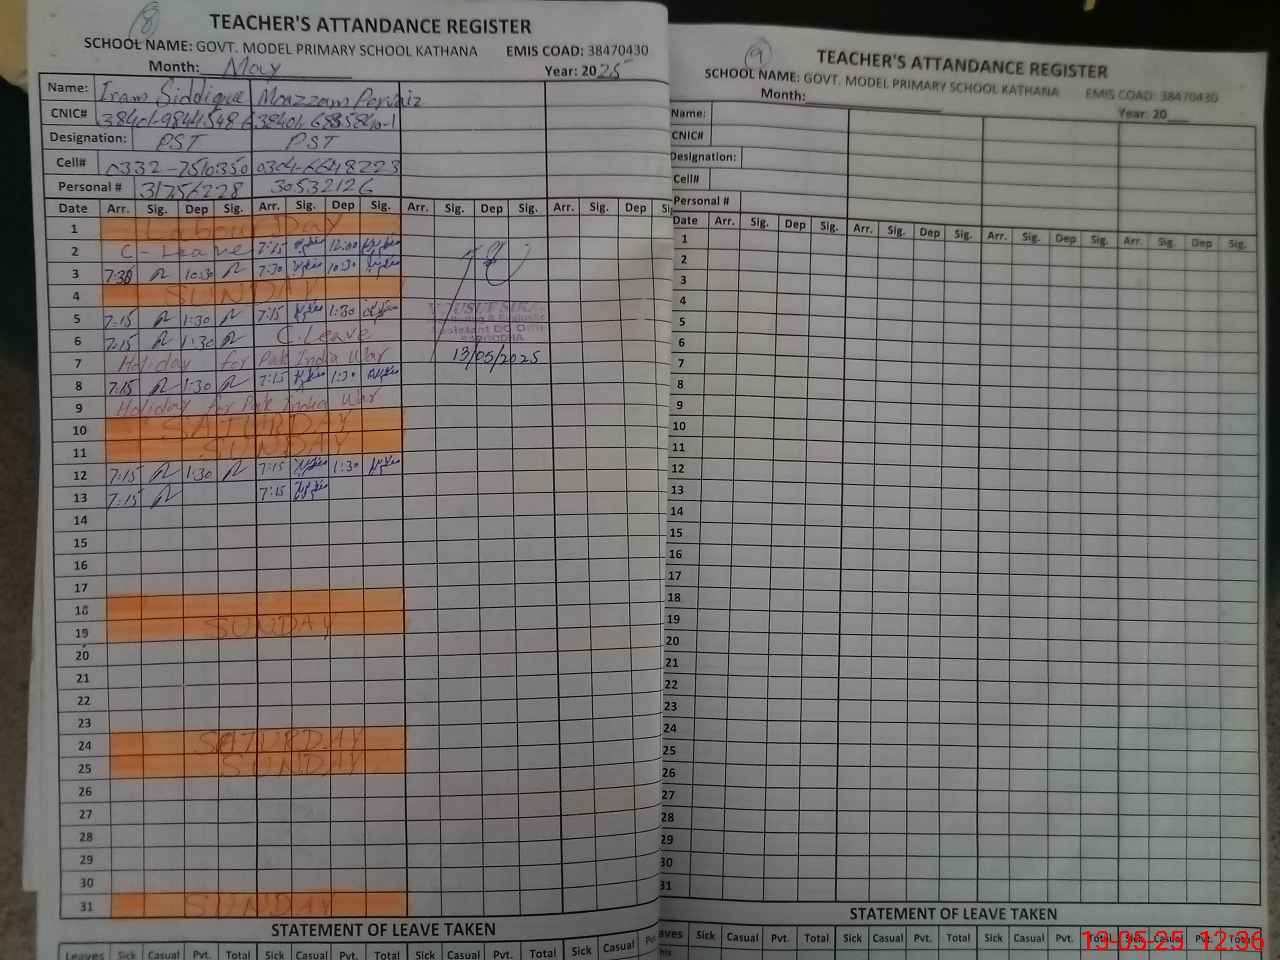 8
TEACHER'S ATTANDANCE REGISTER
SCHOOL NAME: GOVT. MODEL PRIMARY SCHOOL KATHANA EMIS COAD: 38470430
Month: May Year: 2025
Name: Iram Siddique Moazzam Pervaiz
CNIC#
Designation: PST PST
Cell# 0332-7510350 0304-6648223
Personal # 31756228 30532126
Date Arr. Sig. Dep Sig. Arr. Sig. Dep Sig. Arr. Sig. Dep Sig. Arr. Sig. Dep
1 Labour Day
2 C-Leave 7:15 12:00
3 7:30 10:30 7:30 10:30
4 SUNDAY
5 7:15 1:30 7:15 1:30
6 7:15 1:30 C.Leave
7 Holiday for Pak India War
8 7:15 1:30 7:15 1:30
9 Holiday for Pak India War
10 SATURDAY
11 SUNDAY
12 7:15 1:30 7:15 1:30
13 7:15 7:15
14
15
16
17
18
19 SUNDAY
20
21
22
23
24 SATURDAY
25 SUNDAY
26
27
28
29
30
31 SUNDAY
13/05/2025
STATEMENT OF LEAVE TAKEN
Leaves Sick Casual Pvt. Total Sick Casual Pvt. Total Sick Casual
9
TEACHER'S ATTANDANCE REGISTER
SCHOOL NAME: GOVT. MODEL PRIMARY SCHOOL KATHANA EMIS COAD: 38470430
Month: Year: 20
Name:
CNIC#
Designation:
Cell#
Personal #
Date Arr. Sig. Dep Sig. Arr. Sig. Dep Sig. Arr. Sig. Dep Sig. Arr. Sig. Dep Sig.
1
2
3
4
5
6
7
8
9
10
11
12
13
14
15
16
17
18
19
20
21
22
23
24
25
26
27
28
29
30
31
STATEMENT OF LEAVE TAKEN
Sick Casual Pvt. Total Sick Casual Pvt. Total Sick Casual Pvt. Total Sick Casual Pvt. Total
13-05-25 12:36